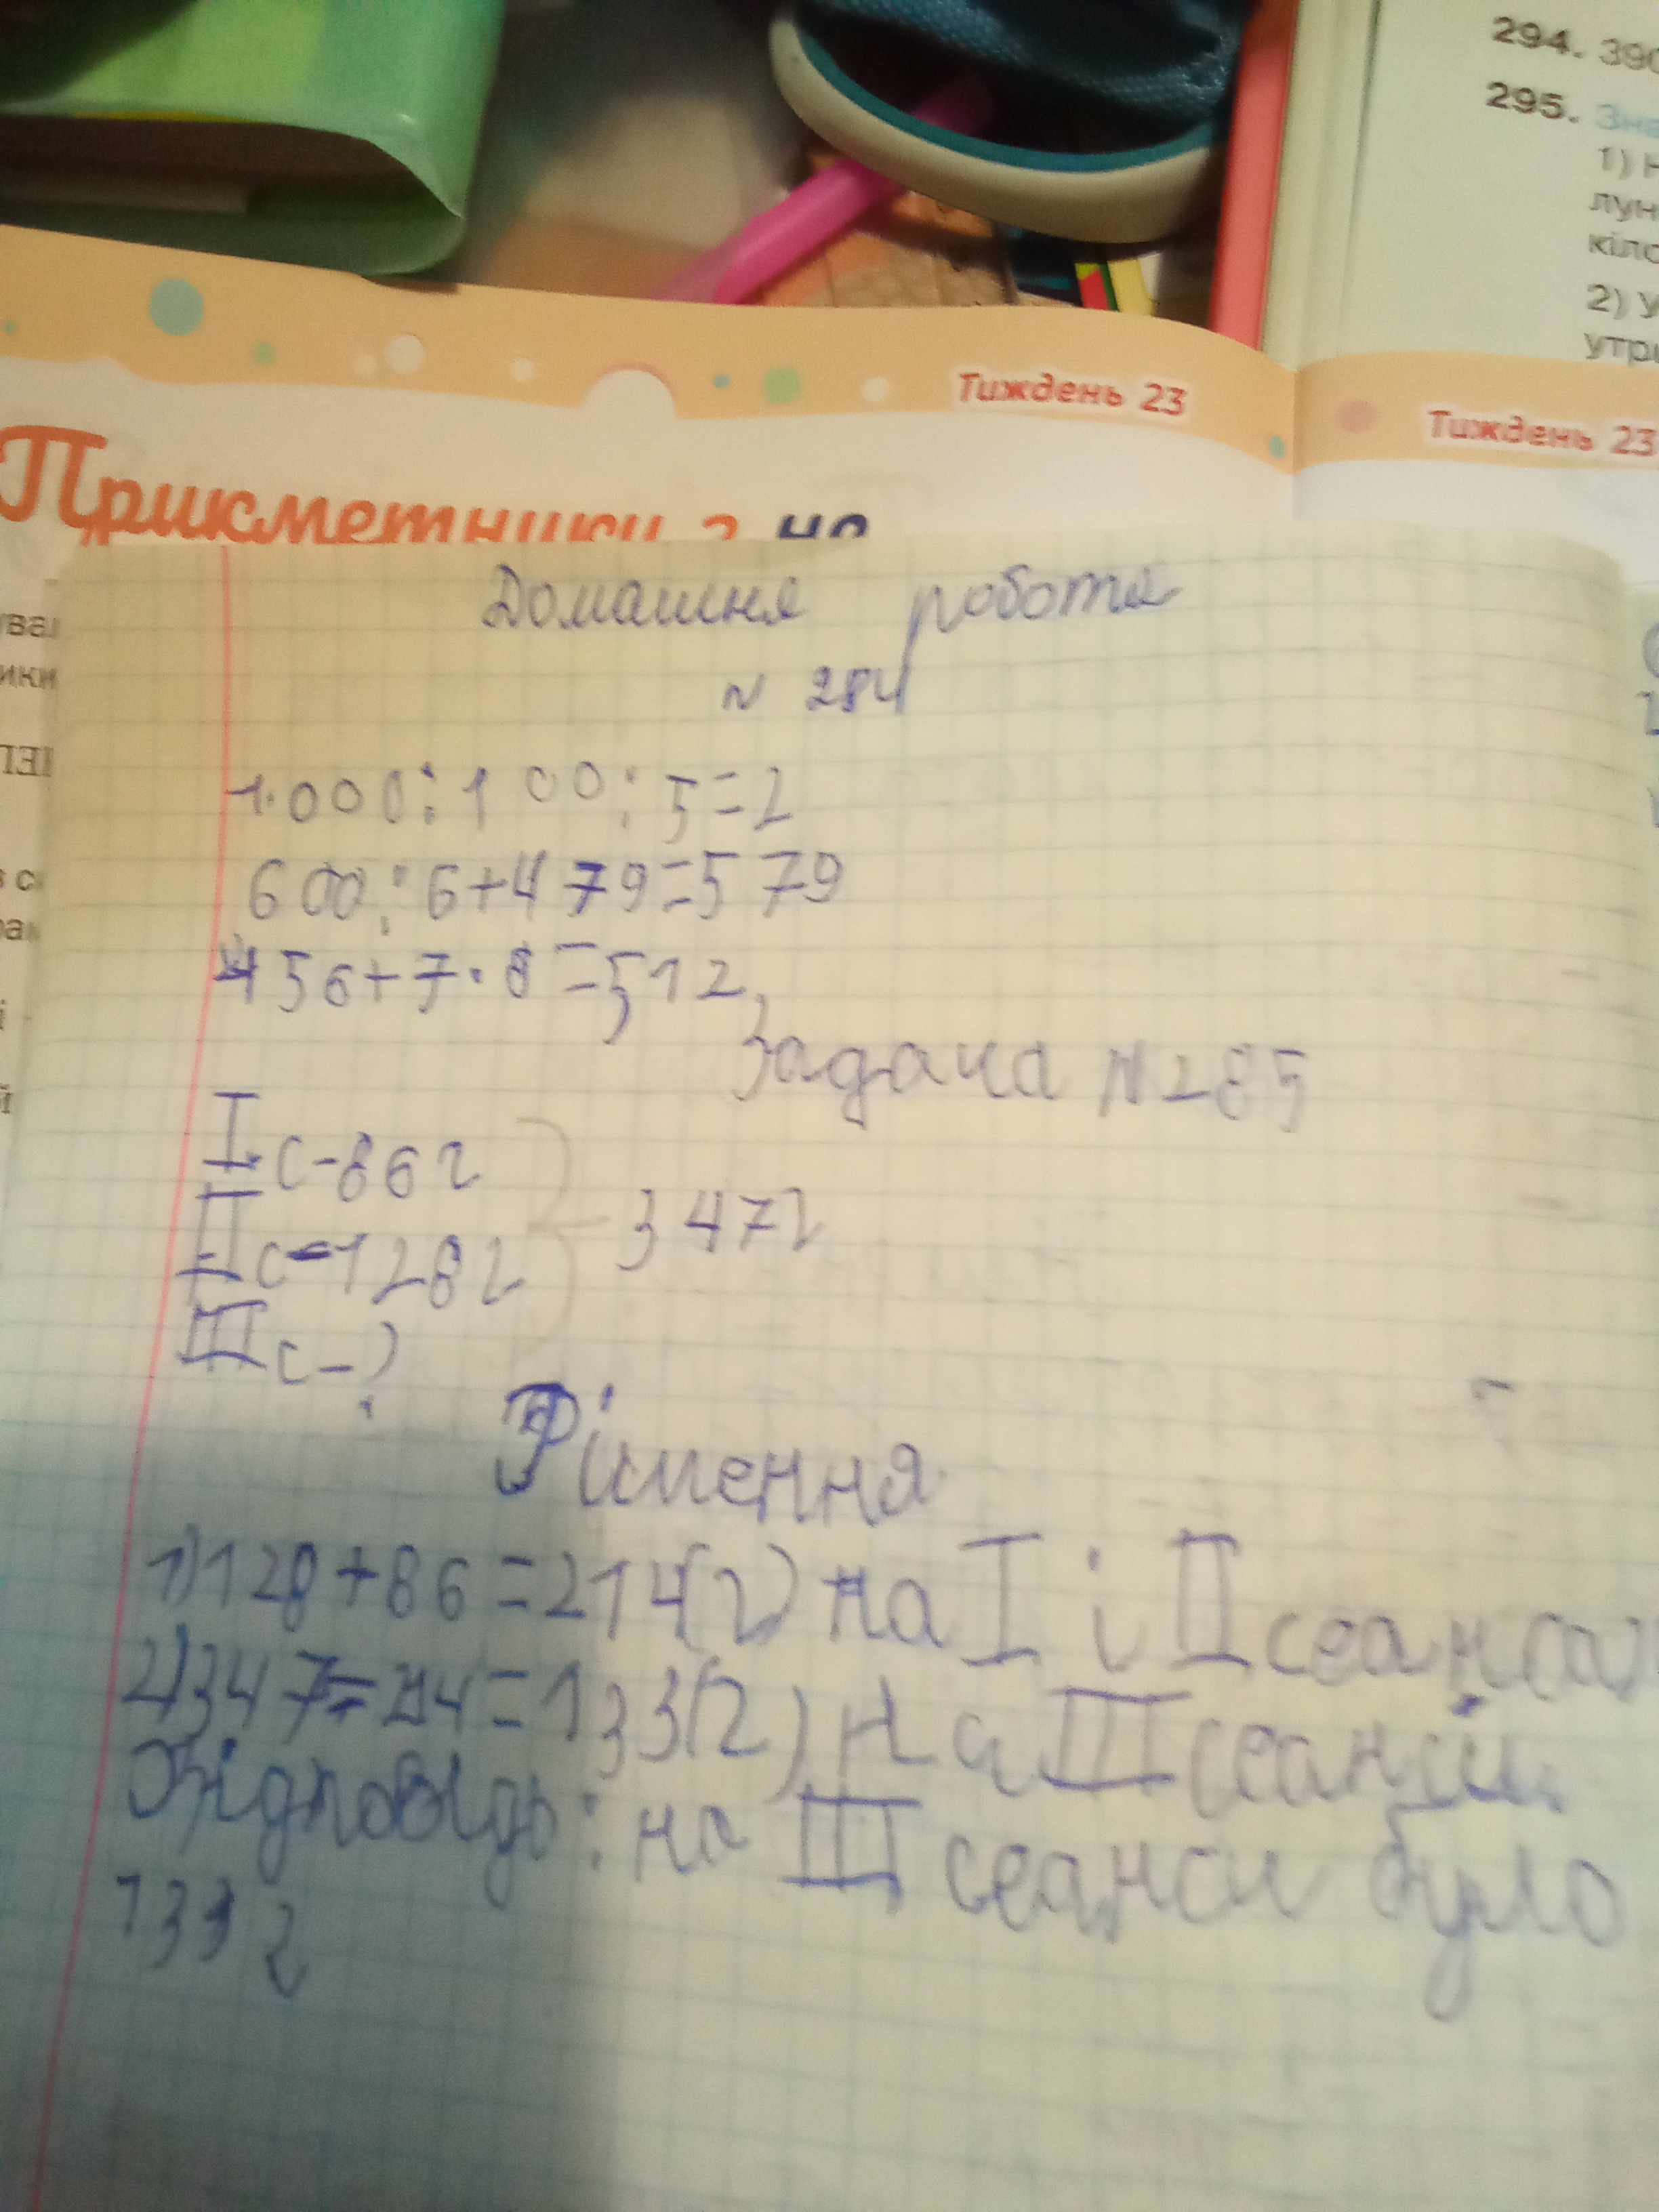 294. 390
295. Зна
1) Н
лун
кіло
2) У
утри
Тиждень 23
Тиждень 23
Прикметники з не
Домашня робота
N 284
1.000:100:5=2
600:6+479=579
456+7·8=512
Задача N285
I с-86г
II с-128г
3472
III с-?
Рішення
1)128+86=214(г) на I і II сеансах
2)347-214=133(г) на III сеансі
Відповідь: на III сеанси було
133 г